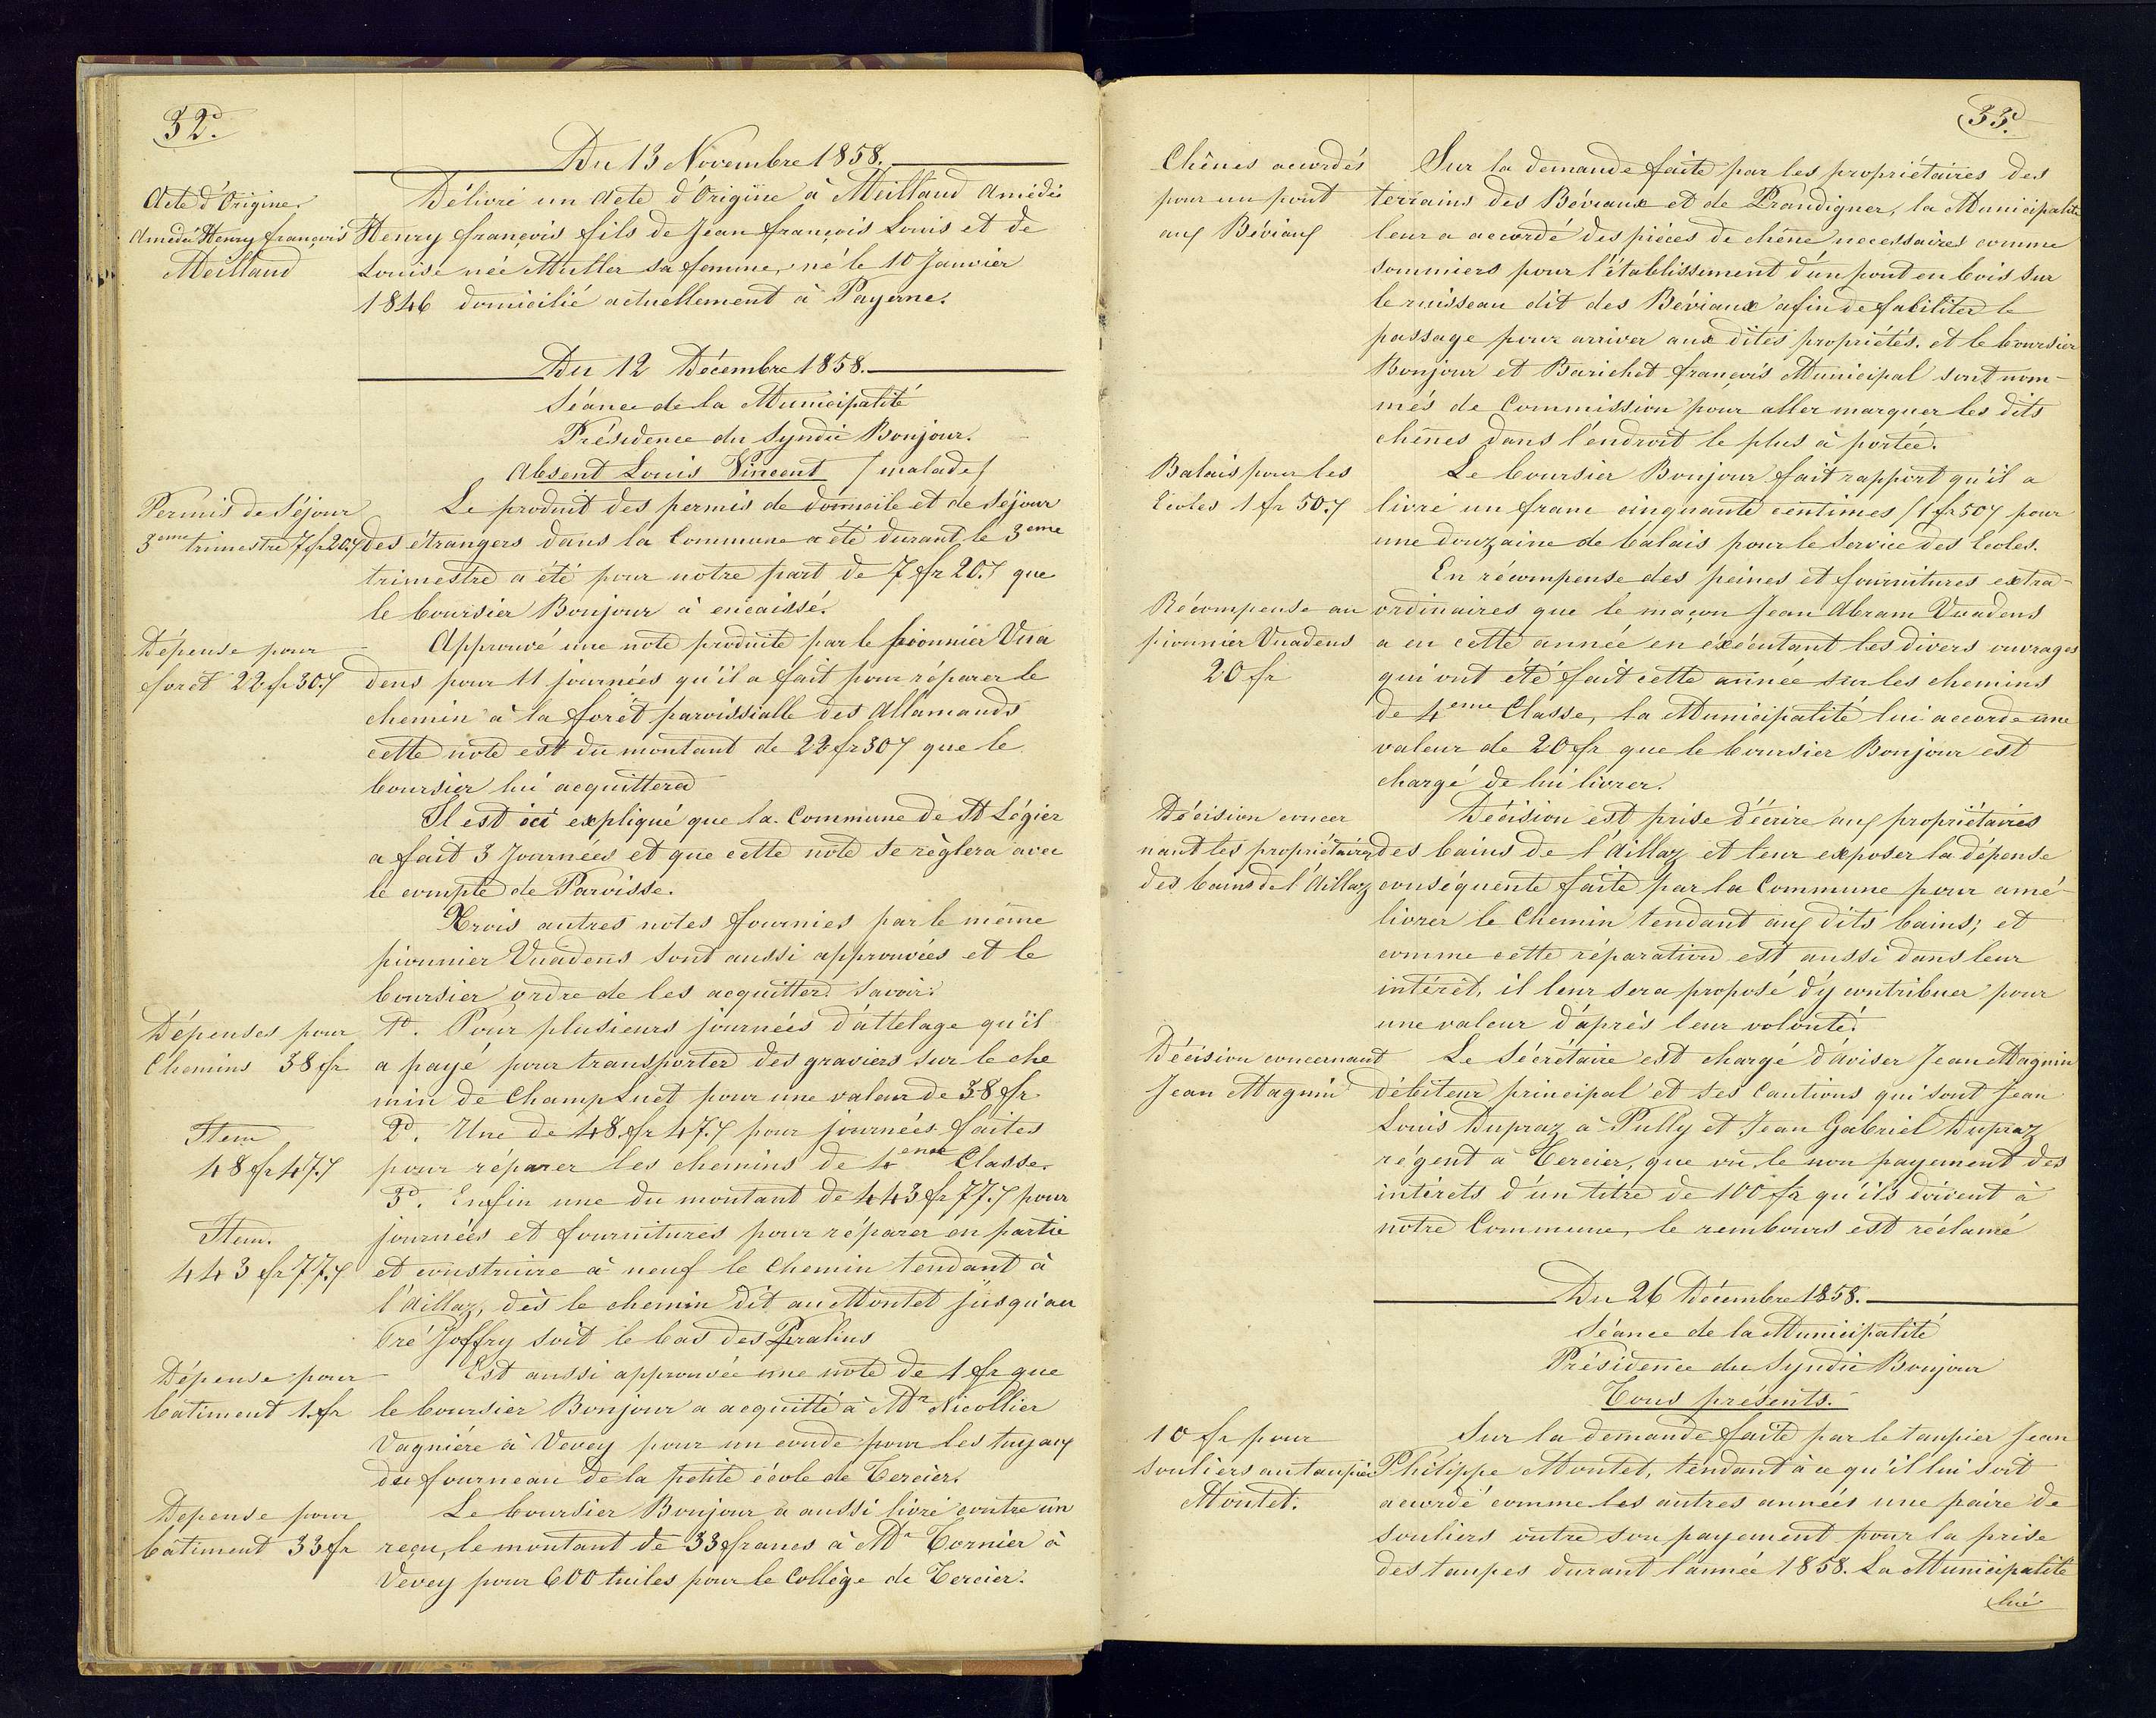 32.
Du 13 Novembre 1858.
Acte d'Origine.
Amédé Henry françois
Meilland
Délivré un Acte d'Origine à Meilland Amédée
Henry françois fils de Jean françois Louis et de
Louise née Muller sa femme, né le 10 Janvier
1846 domicilié actuellement à Payerne.
Du 12 Décembre 1858.
Séance de la Municipalité
Présidence du Syndic Bonjour.
Absent Louis Vincent / malade /
Permis de Séjour
3eme trimestre 7 fr 20.
Le produit des permis de domicile et de Séjour
des étrangers dans la Commune a été durant le 3eme
trimestre a été pour notre part de 7 fr 20. que
le boursier Bonjour à encaissé.
Dépense pour
forêt 22 fr 30.
Approuvé une note produite par le pionnier Vua
dens pour 11 journées qu'il a fait pour réparer le
chemin à la forêt paroissialle des Allamands
cette note est du montant de 22 fr 30 que le
boursier lui acquittera
Il est ici expliqué que la Commune de St Légier
a fait 3 Journées et que cette note se règlera avec
le compte de Paroisse.
Trois autres notes fournies par le même
pionnier Vuadens sont aussi approuvées et le
boursier ordre de les acquitter. Savoir:
Dépenses pour
Chemins 38 fr
1o. Pour plusieurs journées d'attelage qu'il
a payé pour transporter des graviers sur le che
min de Champ Luet pour une valeur de 38 fr.
Item
48 fr 47.
2o. Une de 48 fr 47. pour journées faites
pour réparer les chemins de 4eme Classe.
Item.
443 fr 77.
3o. Enfin une du montant de 443 fr 77. pour
journées et fournitures pour réparer en partie
et construire à neuf le Chemin tendant à
l'Aillaz, dès le chemin dit au Montet jusqu'au
Pré Joffry soit le bas des Pralins
Dépense pour
batiment 1. fr
Est aussi approuvée une note de 1 fr que
le boursier Bonjour a acquitté à Mr Nicollier
Vagnière à Vevey pour un coude pour les tuyaux
du fourneau de la petite école de Tercier.
Depense pour
bâtiment 33 fr
Le boursier Bonjour a aussi livré contre un
reçu, le montant de 33 francs à Mr Cornier à
Vevey pour 600 tuiles pour le Collège de Tercier.
33.
Chênes accordés
pour un pont
aux Béviaux
Sur la demande faite par les propriétaires des
terrains des Béviaux et de Prandigner, la Municipalité
leur a accordé des pièces de chêne necessaires comme
sommiers pour l'établissement d'un pont en bois sur
le ruisseau dit des Béviaux afin de faciliter le
passage pour arriver aux dites propriétés. et le boursier
Bonjour et Barichet françois Municipal sont nom-
més de Commission pour aller marquer les dits
chênes dans l'endroit le plus à portée.
Balais pour les
Ecoles 1 fr 50.
Le boursier Bonjour fait rapport qu'il a
livré un franc cinquante centimes / 1 fr 50 / pour
une douzaine de balais pour le Service des Ecoles.
Récompense au
pionnier Vuadens
20 fr
En récompense des peines et fournitures extra-
ordinaires que le maçon Jean Abram Vuadens
a eu cette année en éxécutant les divers ouvrages
qui ont été fait cette année sur les chemins
de 4eme Classe, la Municipalité lui accorde une
valeur de 20 fr que le boursier Bonjour est
chargé de lui livrer.
Décision concer
nant les propriétaires
des bains de l'Aillaz
Décision est prise d'écrire aux propriétaires
des bains de l'Aillaz et leur exposer la dépense
conséquente faite par la Commune pour amé-
liorer le Chemin tendant aux dits bains; et
comme cette réparation est aussi dans leur
intérêt, il leur sera proposé d'y contribuer pour
une valeur d'après leur volonté.
Décision concernant
Jean Magnin
Le Sécrétaire est chargé d'aviser Jean Magnin
débiteur principal et ses Cautions qui sont Jean
Louis Dupraz à Pully et Jean Gabriel Dupraz
régent à Tercier, que vû le non payement des
intérets d'un titre de 100 fr qu'ils doivent à
notre Commune, le rembours est réclamé
Du 26 Décembre 1858.
Séance de la Municipalité
Présidence du Syndic Bonjour
Tous présents.
10 fr pour
souliers au taupier
Montet.
Sur la demande faite par le taupier Jean
Philippe Montet, tendant à ce qu'il lui soit
accordé comme les autres années une paire de
souliers outre son payement pour la prise
des taupes durant l'année 1858. La Municipalité
lui